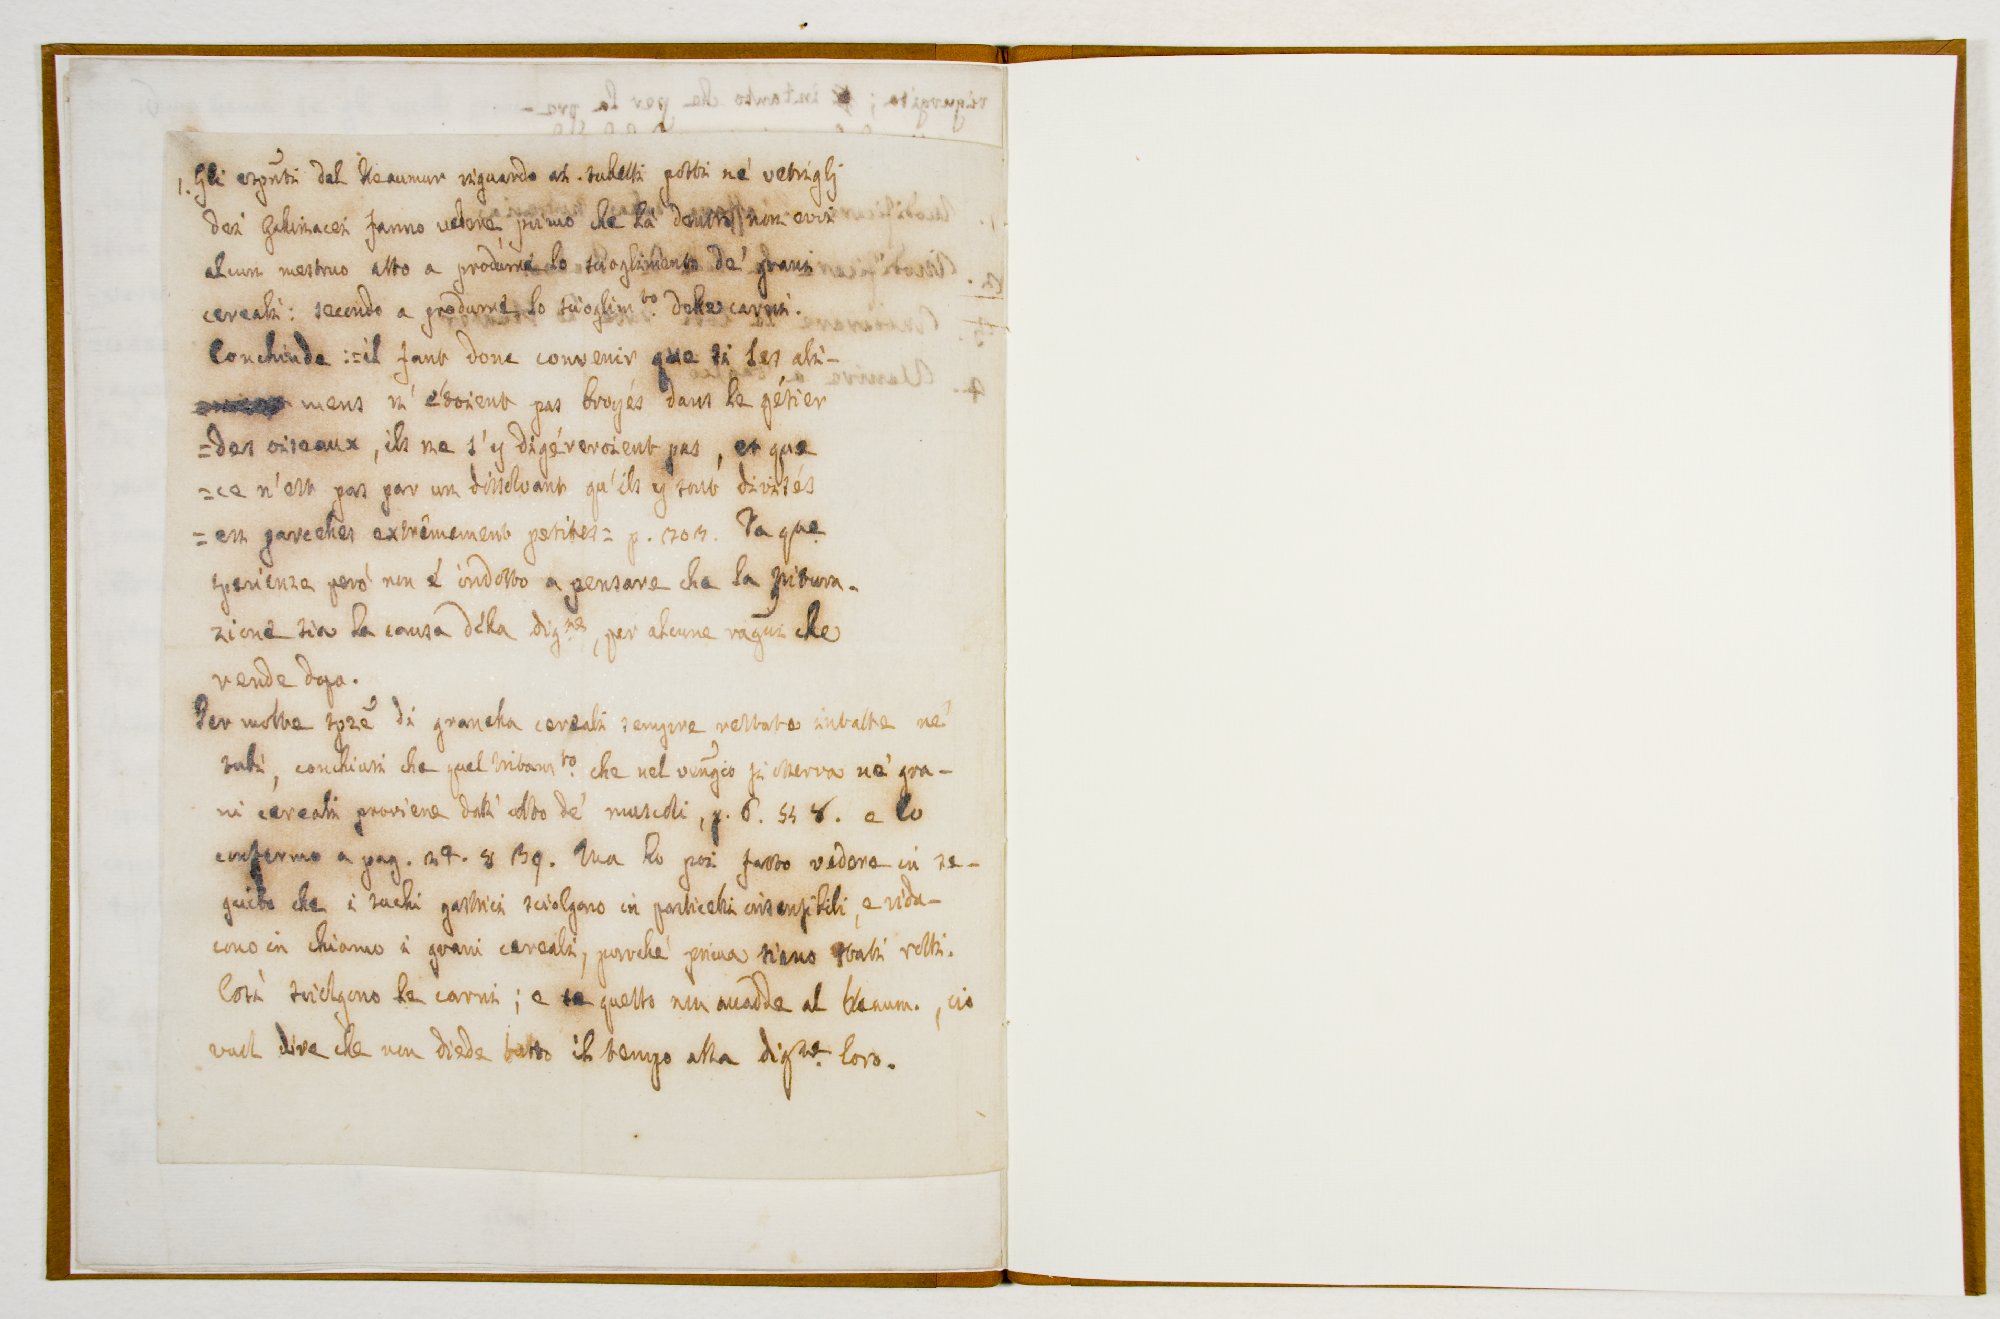 1. Gli esp.ti del Reaumur riguardo ai tubetti posti ne' ventrigli
dei Gallinacei fanno vedere primo che là dentro non evvi
alcun mestruo atto a produrre lo scioglimento de' grani
cereali: secondo a produrre lo scioglim.to delle carni.
Conchiude := il faut donc convenir que si les ali-
mens n'étoient pas broyés dans le gésier
=des oiseaux, ils ne s'y digéreroient pas, et que
=ce n'est pas par un dissolvant qu'ils y sont divisés
=en parcelles extrêmement petites= p.
sperienze però non è indotto a pensare che la tritura-
zione sia la causa della dig.ne, per alcune ragioni che
rende dopo.
Per molte spze di granella cereali sempre restate intatte ne'
tubi, conchiusi che quel tritam.to che nel ventriglio si osserva ne' gra-
ni cereali proviene dall' atto de' muscoli, p. 6. e lo
confermo a pag. Ma ho poi fatto vedere in se-
guito che i suchi gastrici sciolgono in particelle insensibili, e ridu-
cono in chimo i grani cereali, purché prima sieno stati rotti.
Così sciolgono le carni; e se questo non accadde al Reaum., ciò
vuol dire che non diede tutto il tempo alla dig.ne loro.